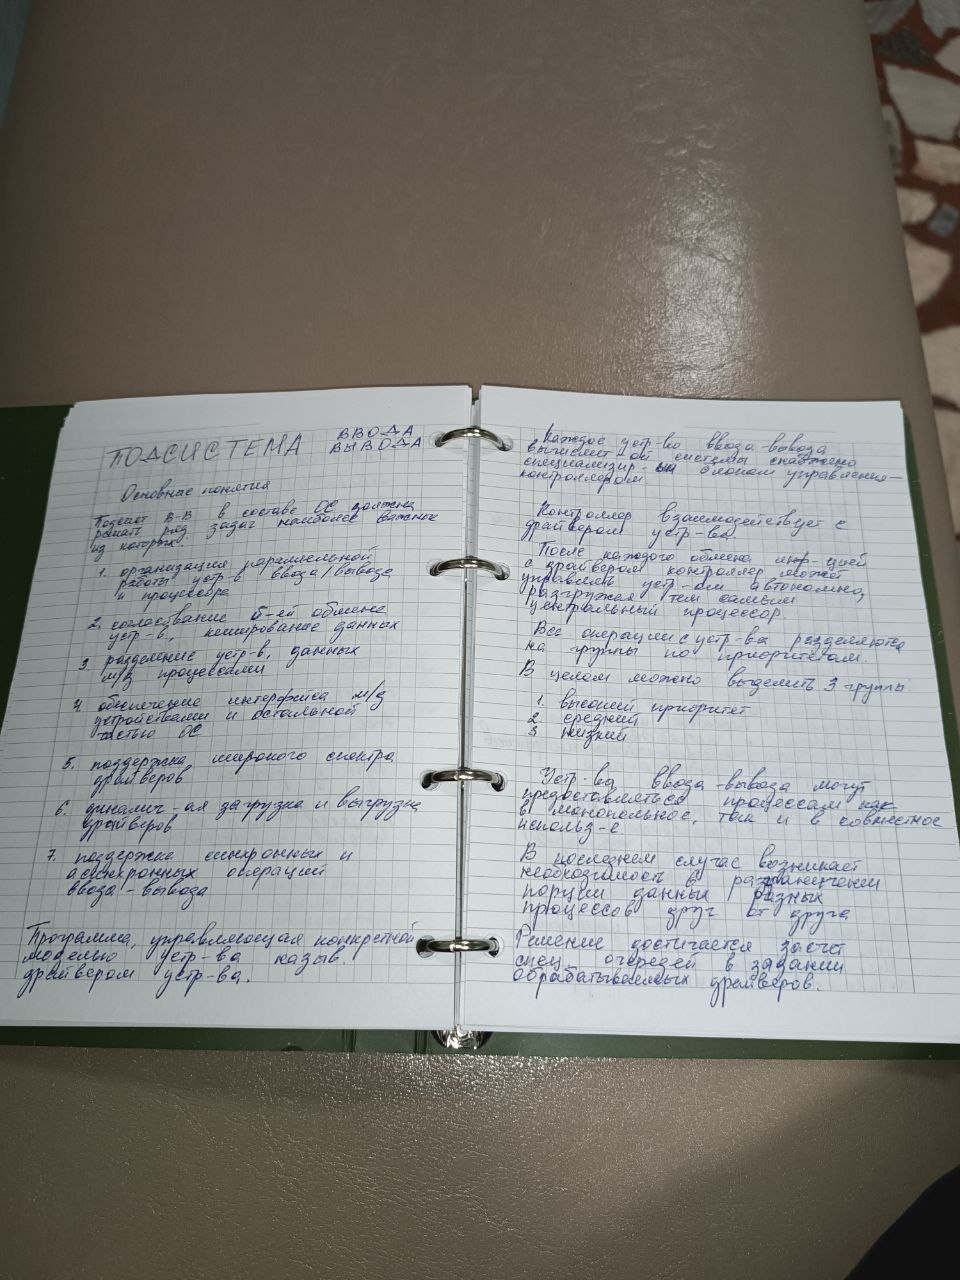 ПОДСИСТЕМА ВВОДА
ВЫВОДА
Основные понятия
Подсист В-В в составе ОС должна
решать ряд задач наиболее важные
из которых:
1. организация параллельной
работы устр-в ввода/вывода
и процессора
2. согласование б-ей обмена
устр-в, кеширование данных
3 разделение устр-в, данных
м/д процессами
4. обеспечение интерфейса м/д
устройствами и остальной
частью ОС
5. поддержка широкого спектра
драйверов
6. динамич-ая загрузка и выгрузка
драйверов
7. поддержка синхронных и
асинхронных операций
ввода-вывода
Программа, управляющая конкретной
моделью устр-ва назыв.
драйвером устр-ва.
Каждое устр-во ввода-вывода
вычислит-ой системы снабжено
специализир- блоком управления-
контроллером
Контроллер взаимодействует с
драйвером устр-ва.
После каждого обмена инф-цией
с драйвером контроллер может
управлять устр-ом автономно,
разгружая тем самым
центральный процессор.
Все операции с устр-ва разделяются
на группы по приоритетам.
В целом можно выделить 3 группы
1. высший приоритет
2 средний
3 низкий
Устр-ва ввода-вывода могут
предоставляться процессам как
в монопольное, так и в совместное
использ-е
В последнем случае возникает
необходимость в разграничении
порции данных разных
процессов друг от друга
Решение достигается засчёт
спец. очередей в задании
обрабатываемых драйверов.